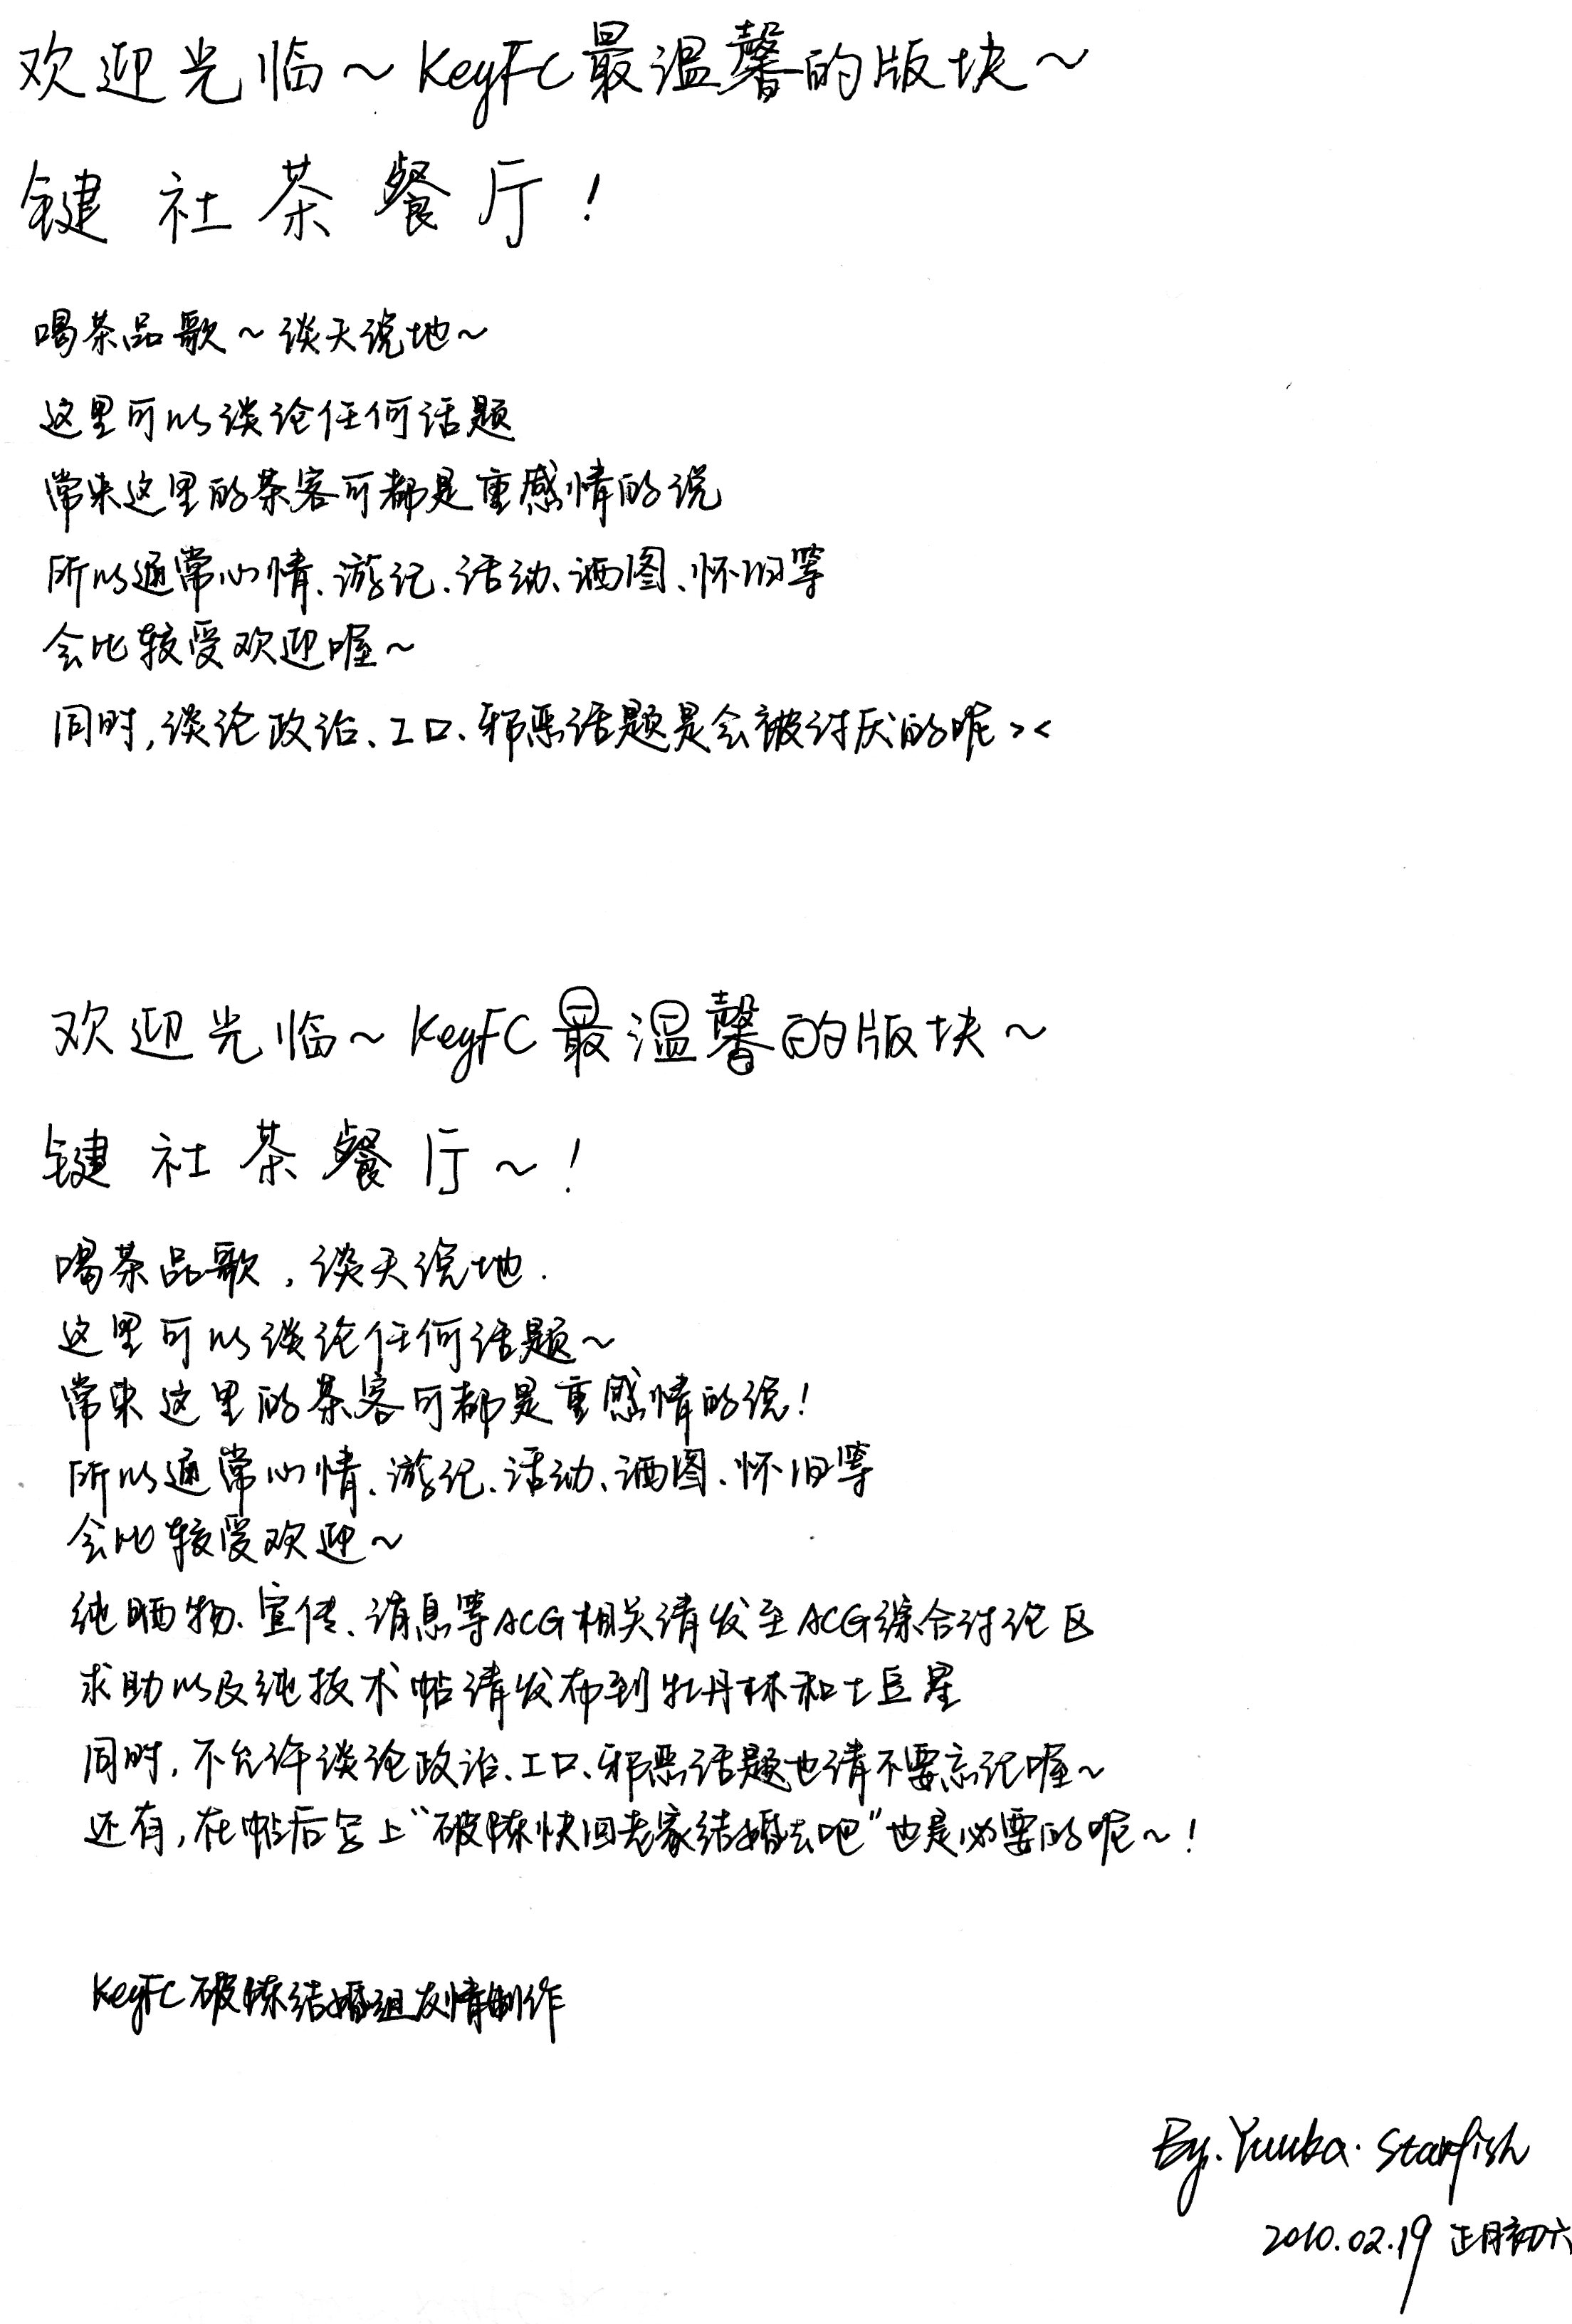 欢迎光临～KeyFC最温馨的版块～
键社茶餐厅！
喝茶品歌～谈天说地～
这里可以谈论任何话题
常来这里的茶客可都是重感情的说
所以通常心情、游记、活动、晒图、怀旧等
会比较受欢迎喔～
同时,谈论政治、工口、邪恶话题是会被讨厌的呢><
欢迎光临～KeyFC最温馨的版块～
键社茶餐厅～！
喝茶品歌，谈天说地.
这里可以谈论任何话题～
常来这里的茶客可都是重感情的说！
所以通常心情、游记、活动、晒图、怀旧等
会比较受欢迎～
纯晒物、宣传、消息等ACG相关请发至ACG综合讨论区
求助以及纯技术帖请发布到牡丹林和土豆星
同时,不允许谈论政治、工口、邪恶话题也请不要忘记喔～
还有,在帖后写上“破陈快回老家结婚去吧”也是必要的呢～！
KeyFC破陈结婚组友情制作
By.Yuuka·Starfish
2010.02.19 正月初六